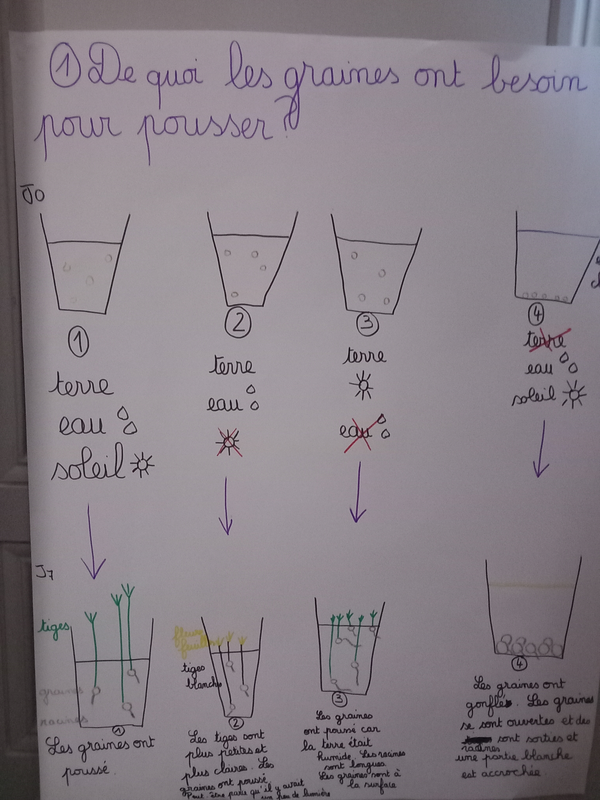 ① De quoi les graines ont besoin
pour pousser ?
J0
①
terre
eau
soleil
②
terre
eau
③
terre
eau
④
terre
eau
soleil
J7
tiges
graines
racines
①
Les graines ont
poussé.
tiges
blanches
②
Les tiges sont
plus petites et
plus claires. Les
graines ont poussé.
Peut-être parce qu'il y avait
un peu de lumière
③
Les graines
ont poussé car
la terre était
humide. Les racines
sont longues.
Les graines sont à
la surface
④
Les graines ont
gonflé. Les graines
se sont ouvertes et des
racines sont sorties et
une partie blanche
est accrochée.